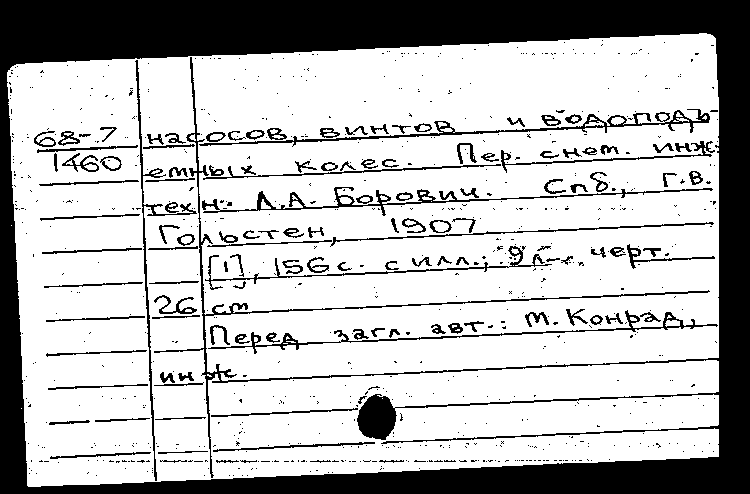 68-7 насосов, винтов и водоподъ-
1460 емных колес. Пер. с нем. инж.
техн. Л.А. Борович. Спб., Г.В.
Гольстен, 1907
[1], 156 с. с илл.; 9 л. черт.
26 см
Перед загл. авт.: М. Конрад,
инж.